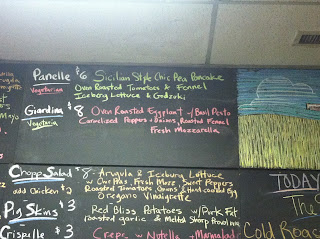 Panelle $6 Sicilian Style Chic Pea Pancake
Vegetarian Oven Roasted Tomatoes & Fennel
Iceberg Lettuce &
Giardina $8 Oven Roasted Eggplant w/ Basil Pesto
Vegetaria Carmelized Peppers + Onions, Roasted Fennel
Fresh Mozzarella
Chopp Salad $8 - Arugula & Iceberg Lettuce
add Chicken $3 w/ Chic Peas, Fresh Mozz, Sweet Peppers
Roasted Tomatoes, Onions
Oregano Vinaigrette
Pig Skins $3 Red Bliss Potatoes w/ Pork Fat
roasted garlic & Melted Sharp Provolone
Crispelle $3 Crepe w/ Nutella + Marmalad
TODAY
The S
Cold Roas